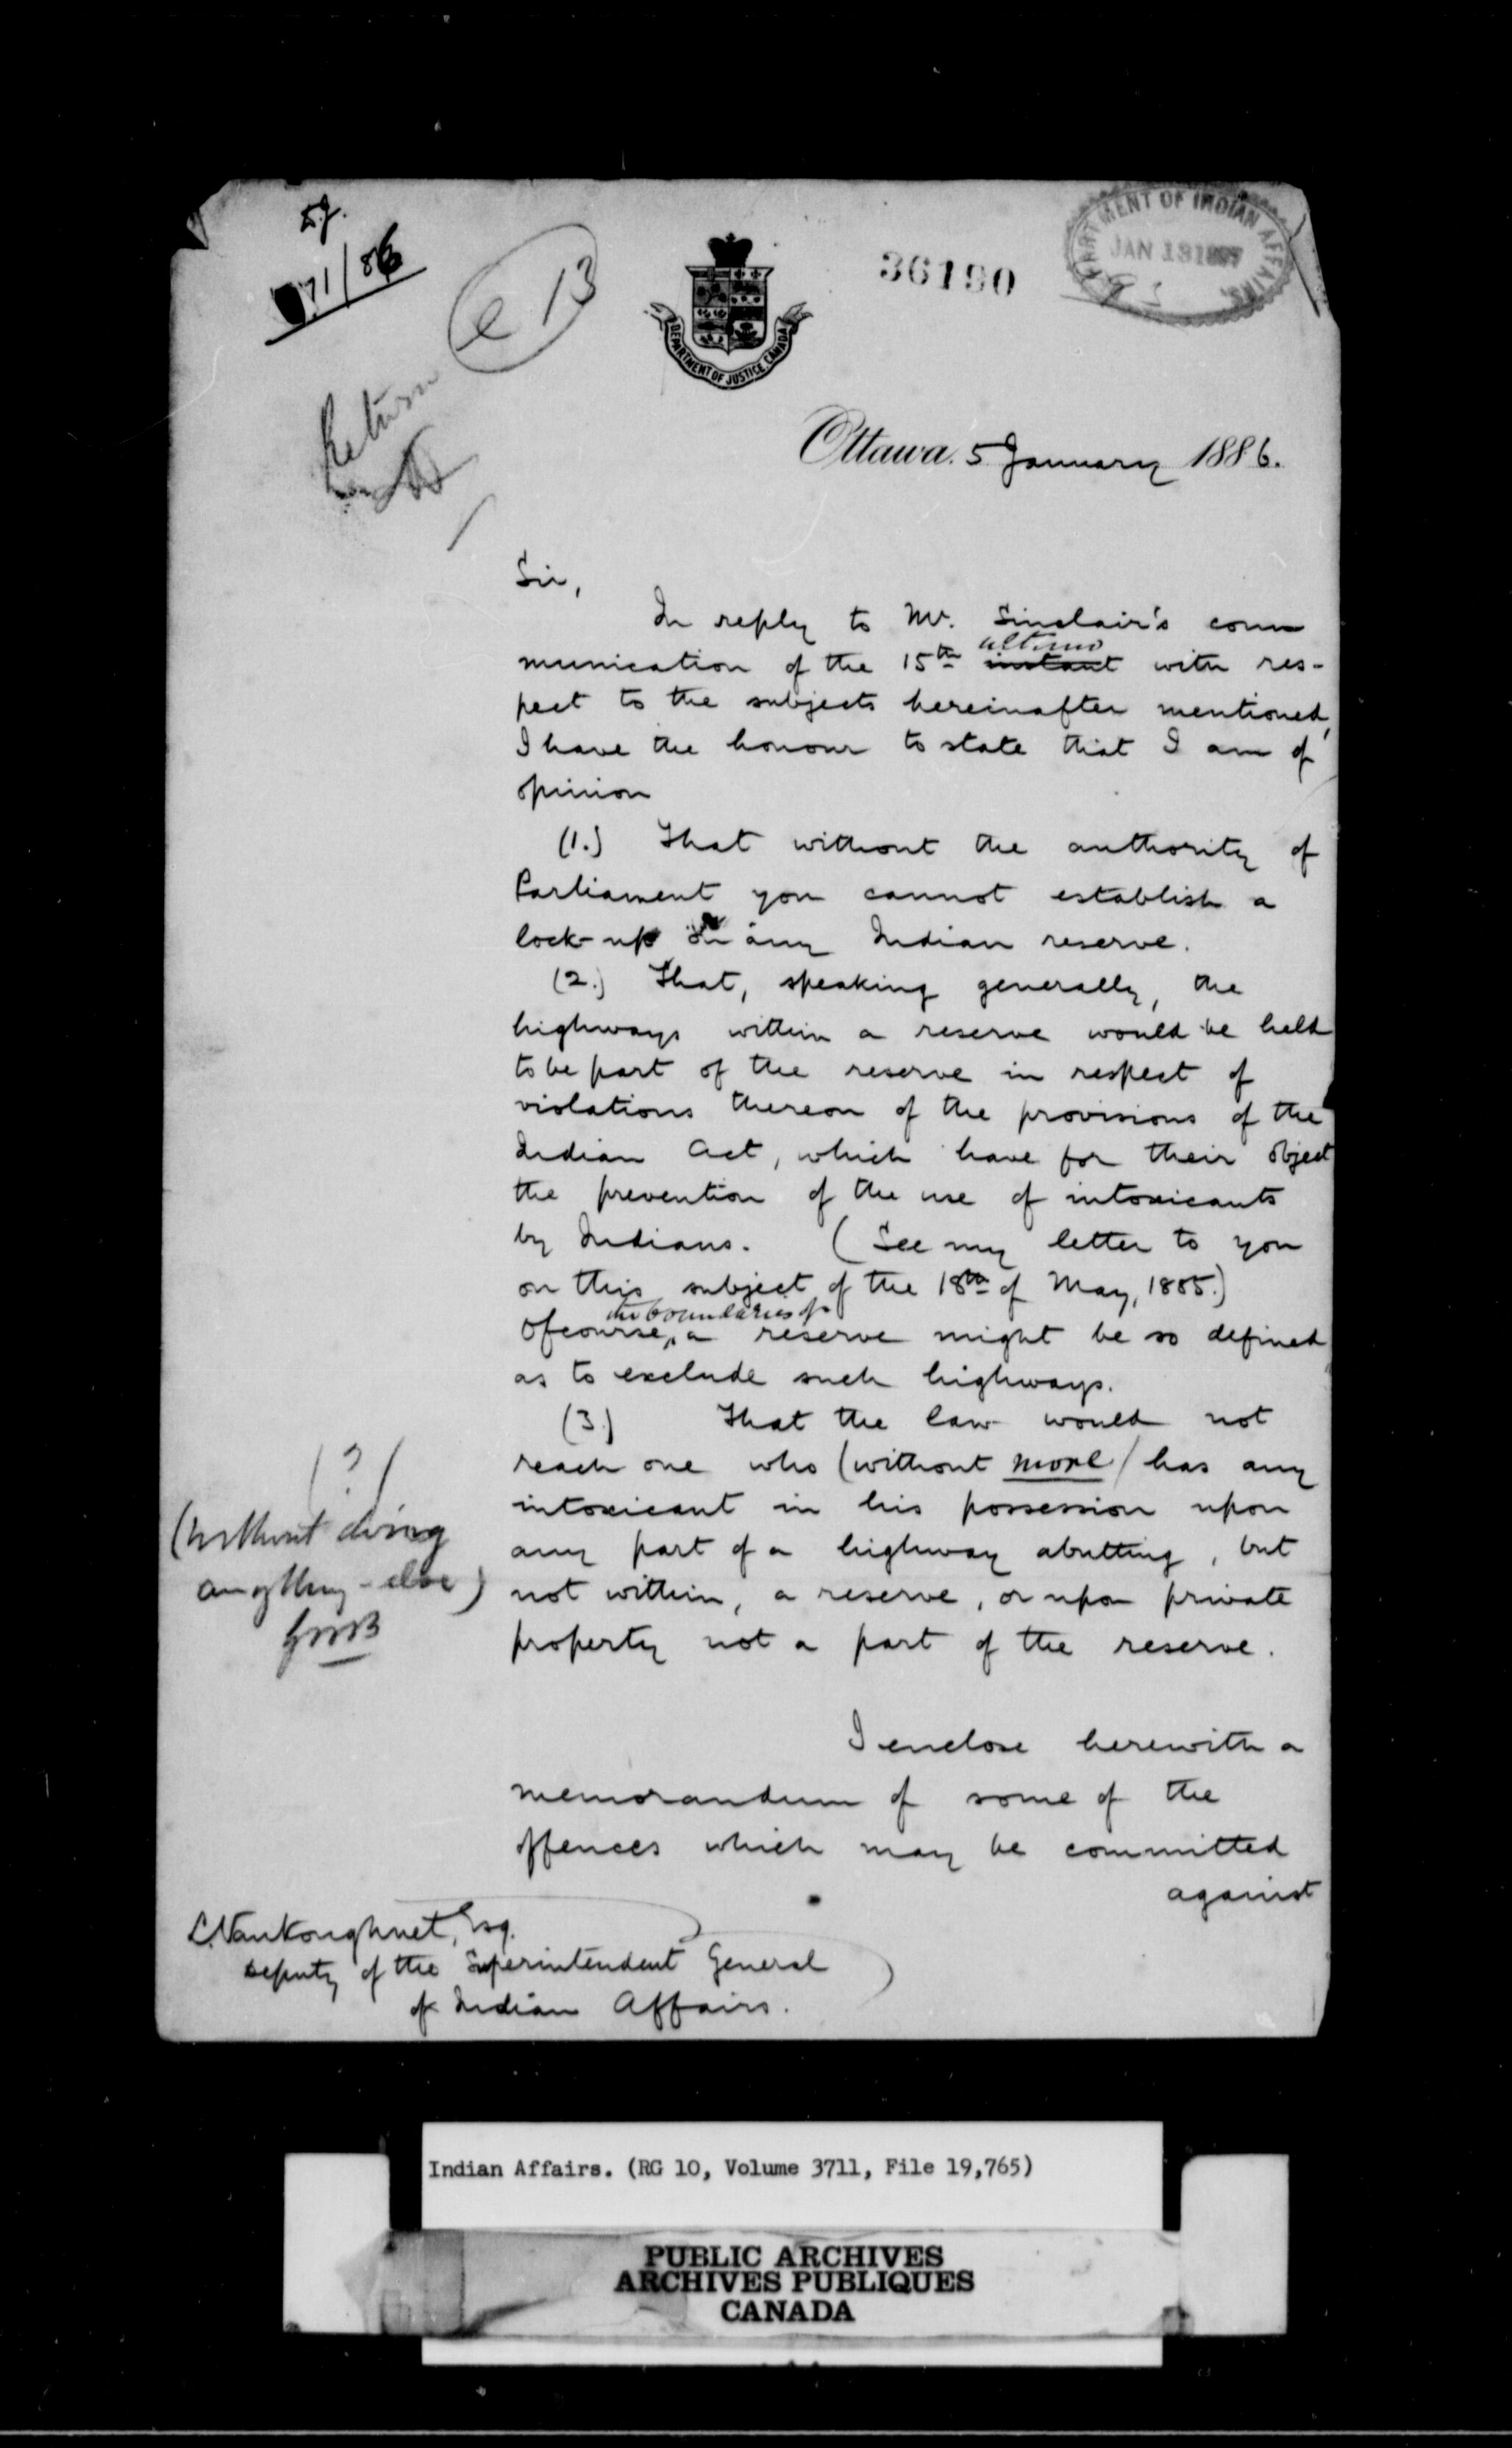 e 13
36190
DEPARTMENT OF INDIAN AFFAIRS
JAN 13 1887
DEPARTMENT OF JUSTICE, CANADA
Return
Ottawa. 5 January 1886.
Sir,
In reply to Mr. Sinclair's com
munication of the 15th ultimo instant with res-
pect to the subjects hereinafter mentioned,
I have the honour to state that I am of
opinion
(1.) That without the authority of
Parliament you cannot establish a
lock-up on any Indian reserve.
(2.) That, speaking generally, the
highways within a reserve would be held
to be part of the reserve in respect of
violations thereon of the provisions of the
Indian Act, which have for their object
the prevention of the use of intoxicants
by Indians. (See my letter to you
on this subject of the 18th of May, 1885.)
Of course, the boundaries of a reserve might be so defined
as to exclude such highways.
(3.) That the law would not
reach one who (without more) has any
intoxicant in his possession upon
any part of a highway abutting, but
not within, a reserve, or upon private
property not a part of the reserve.
(?)
(without doing
anything else)
I enclose herewith a
memorandum of some of the
offences which may be committed
against
L. VanKoughnet, Esq.
Deputy of the Superintendent General
of Indian Affairs.
Indian Affairs. (RG 10, Volume 3711, File 19,765)
PUBLIC ARCHIVES
ARCHIVES PUBLIQUES
CANADA